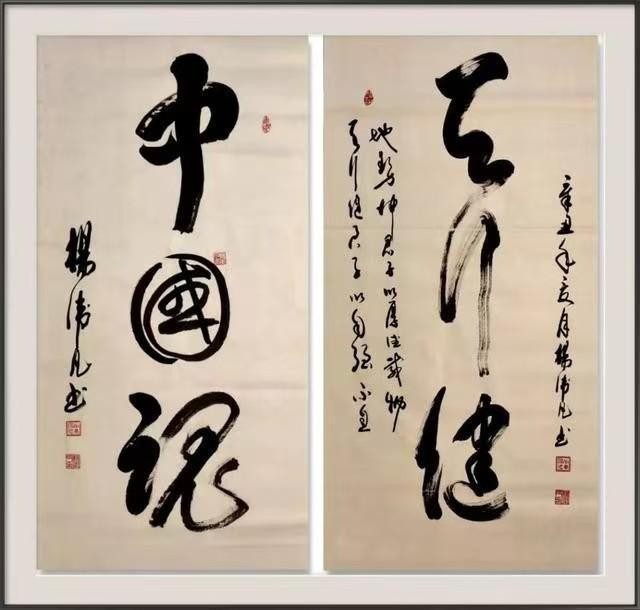 天行健
天行健君子以自强不息
地势坤君子以厚德载物
辛丑年亥月楊凡书
中國魂
楊凡书